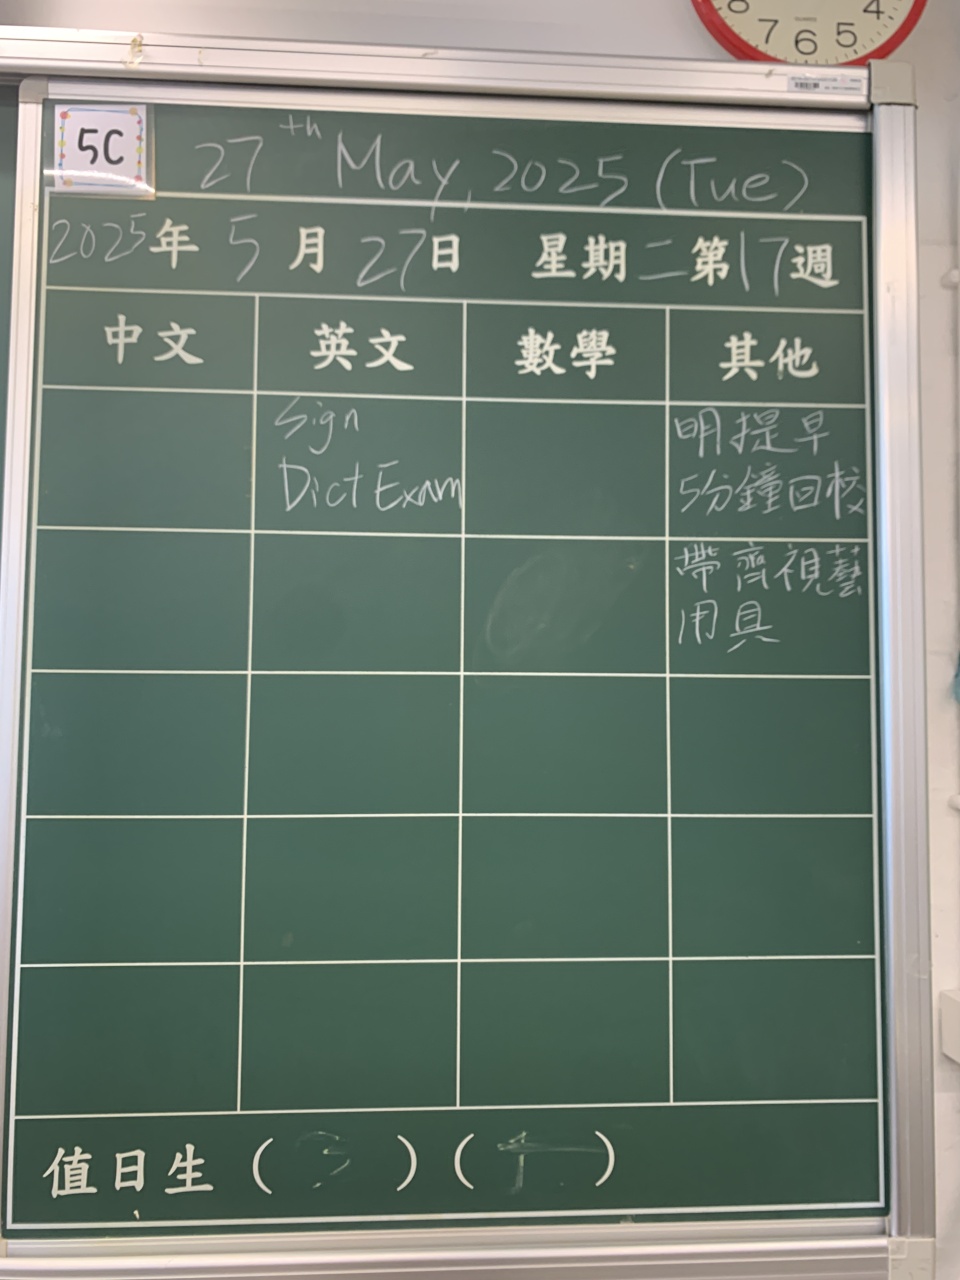 5C
27th May, 2025 (Tue)
2025年 5月 27日 星期二第17週
中文 英文 數學 其他
Sign
Dict Exam
明提早
5分鐘回校
帶齊視藝
用具
值日生( )( )
8 7 6 5 4